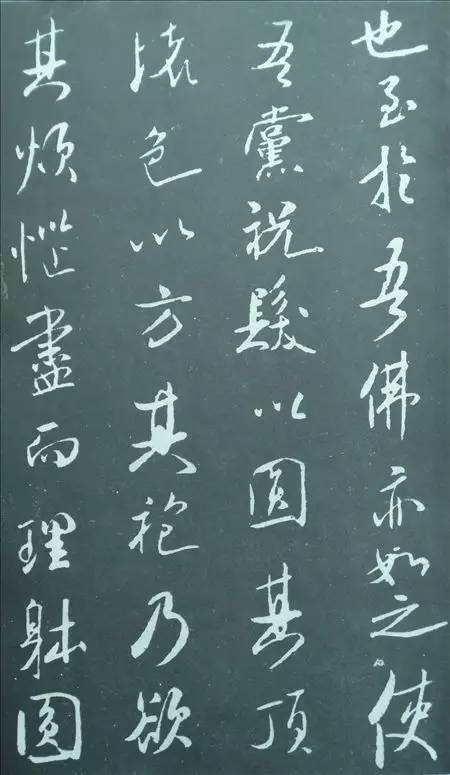 也至於吾佛亦如之使
吾黨祝髮以圓其頂
壞色以方其袍乃欲
其煩惱盡而理躰圓